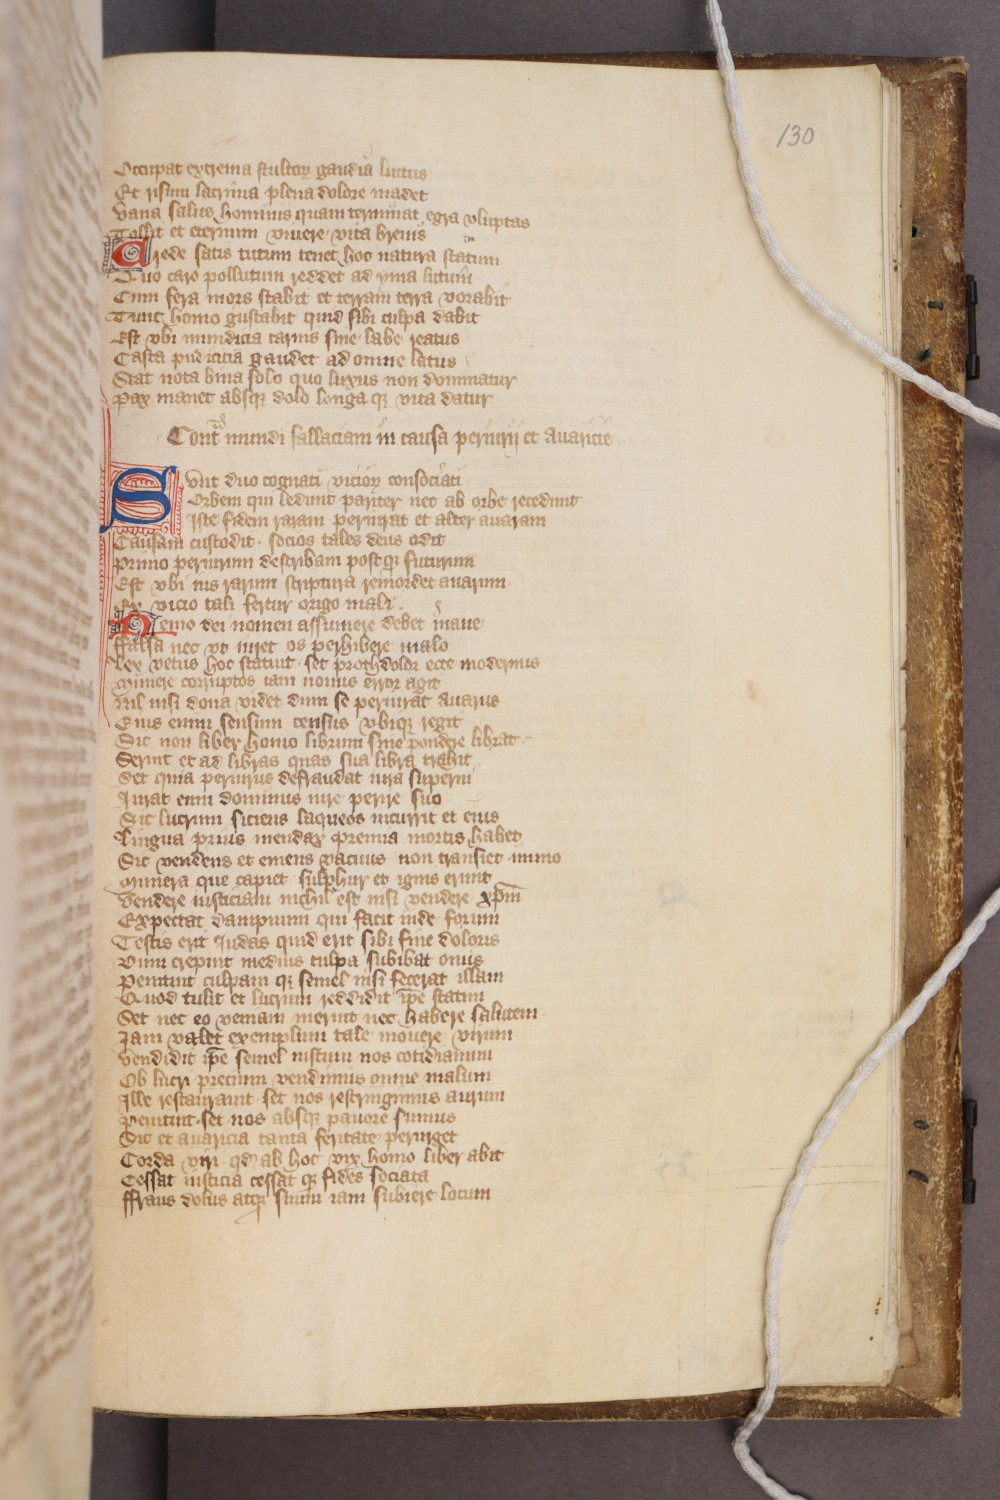 130
Occupat extrema stultoꝝ gaudia luctus
Et risum lacrima plena dolore madet
Vana salus hominis quam terminat egra voluptas
Tollit et eternum viuere vita breuis
Crede satis tutum tenet hoc natura statum
Quo caro pollutum reddet ad yma lutum
Cum fera mors stabit et terram terra vorabit
Tunc homo gustabit quid sibi culpa dabit
Est vbi mundicia carnis sine labe reatus
Casta pudicicia gaudet ad omne latus
Stat nota bina solo quo luxus non dominatur
Pax manet absqꝫ dolo longa qꝫ vita datur
Contᵃ mundi fallaciam in causa periurij et auaricie
Sunt duo cognati vicioꝝ consociati
Orbem qui ledunt pariter nec ab orbe recedunt
Iste fidem raram periurat et alter auaram
Causam custodit socios tales deus odit
Primo periurum describam postqꝫ futurum
Est vbi ius rarum scriptura remordet auarum
Ex vicio tali fertur origo mali
Nemo dei nomen assumere debet inane
ffalsa nec vt iuret os perhibere malo
Lex vetus hoc statuit set prothdolor ecce modernus
Munere corruptos iam nouus error agit
Nil nisi dona videt dum se periurat auarus
Eius enim sensum census vbiqꝫ regit
Sic non liber homo librum sine pondere librat
Seruit et ad libras quas sua libra trahit
Set quia periurus defraudat iura superni
Iurat enim dominus iure perire suo
Sic lucrum siciens laqueos incurrit et eius
Lingua prius mendax premia mortis habet
Sic vendens et emens vacuus non transiet immo
Munera que capiet sulphur et ignis erunt
Vendere iusticiam nichil est nisi vendere xp̄m
Expectat dampnum qui facit inde forum
Testis erit Iudas quid erit sibi fine doloris
Dum crepuit medius culpa subibat onus
Penituit culpam qꝫ semel nisi fecerat illam
Quod tulit et lucrum reddidit ip̄e statim
Set nec eo veniam meruit nec habere salutem
Iam valet exemplum tale mouere virum
Vendidit ip̄e semel iustum nos cotidianum
Ob lucri precium vendimus omne malum
Ille restaurauit set nos restringimus aurum
Penituit set nos absqꝫ pauore sumus
Sic et auaricia tanta feritate perurget
Corda viri qđ ab hoc vix homo liber abit
Cessat iusticia cessat qꝫ fides sociata
ffraus dolus atqꝫ suum iam subiere locum